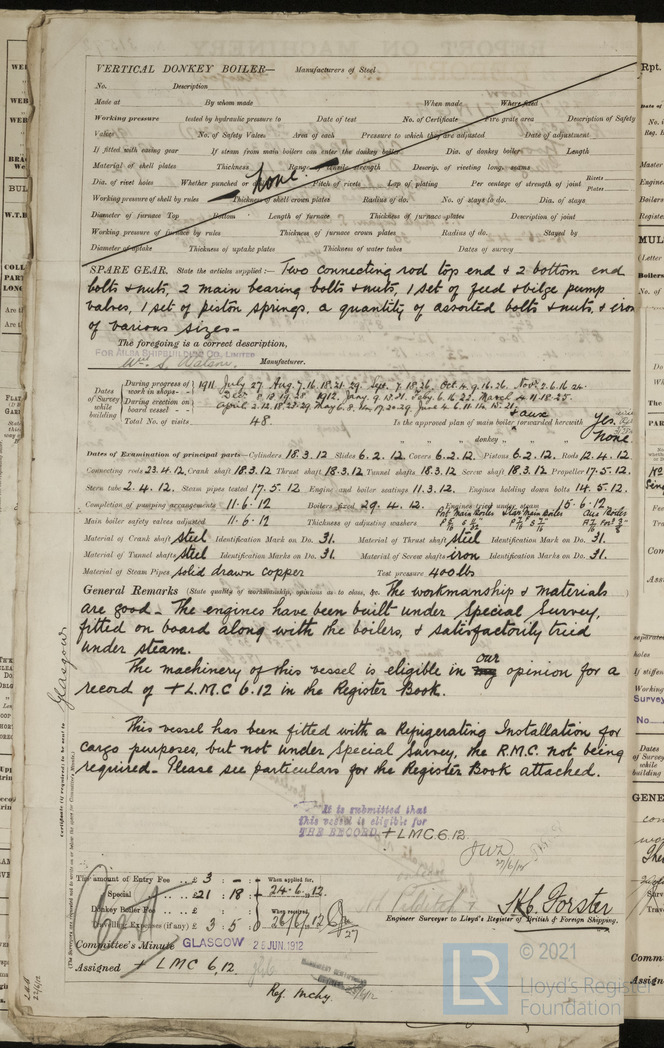 VERTICAL DONKEY BOILER— Manufacturers of Steel
No. Description
Made at By whom made When made Where fixed
Working pressure tested by hydraulic pressure to Date of test No. of Certificate Fire grate area Description of Safety
Valves No. of Safety Valves Area of each Pressure to which they are adjusted Date of adjustment
If fitted with easing gear If steam from main boilers can enter the donkey boiler Dia. of donkey boiler Length
Material of shell plates Thickness Range of tensile strength Descrip. of riveting long. seams
Dia. of rivet holes Whether punched or Pitch of rivets Lap of plating Per centage of strength of joint Rivets Plates
none.
Working pressure of shell by rules Thickness of shell crown plates Radius of do. No. of stays to do. Dia. of stays
Diameter of furnace Top Bottom Length of furnace Thickness of furnace plates Description of joint
Working pressure of furnace by rules Thickness of furnace crown plates Radius of do. Stayed by
Diameter of uptake Thickness of uptake plates Thickness of water tubes Dates of survey
SPARE GEAR. State the articles supplied:— Two connecting rod top end & 2 bottom end
bolts & nuts, 2 main bearing bolts & nuts, 1 set of feed & bilge pump
valves, 1 set of piston springs, a quantity of assorted bolts & nuts, & iron
of various sizes—
The foregoing is a correct description,
FOR AILSA SHIPBUILDING CO. LIMITED
Manufacturer.
Dates of Survey while building
During progress of work in shops-- 1911. July 27. Aug. 7. 16. 18. 21. 29. Sept. 7. 18. 26. Oct. 4. 9. 16. 26. Nov. 2. 6. 16. 24.
During erection on board vessel---
Total No. of visits 48 Is the approved plan of main boiler forwarded herewith Yes.
& aux
" " " donkey " " " None
Dates of Examination of principal parts—Cylinders 18.3.12 Slides 6.2.12. Covers 6.2.12. Pistons 6.2.12. Rods 12.4.12
Connecting rods 23.4.12, Crank shaft 18.3.12 Thrust shaft 18.3.12 Tunnel shafts 18.3.12 Screw shaft 18.3.12 Propeller 17.5.12.
Stern tube 2.4.12. Steam pipes tested 17.5.12 Engine and boiler seatings 11.3.12. Engines holding down bolts 14.5.12.
Completion of pumping arrangements 11.6.12 Boilers fixed 29.4.12. Engines tried under steam 15.6.12
Main boiler safety valves adjusted 11.6.12 Thickness of adjusting washers
Port Main Boiler Star Main Boiler Aux Boiler
Material of Crank shaft steel Identification Mark on Do. 31. Material of Thrust shaft steel Identification Mark on Do. 31.
Material of Tunnel shafts steel Identification Marks on Do. 31. Material of Screw shafts iron Identification Marks on Do. 31.
Material of Steam Pipes solid drawn copper Test pressure 400 lbs
General Remarks (State quality of workmanship, opinions as to class, &c. The workmanship & materials
are good— The engines have been built under Special Survey,
fitted on board along with the boilers, & satisfactorily tried
under steam.
The machinery of this vessel is eligible in our opinion for a
record of + L.M.C 6.12 in the Register Book.
This vessel has been fitted with a Refrigerating Installation for
cargo purposes, but not under Special Survey, the R.M.C. not being
required— Please see particulars for the Register Book attached.
Glasgow
It is submitted that
this vessel is eligible for
THE RECORD + LMC 6.12.
The amount of Entry Fee .. £ 3 : - : When applied for,
Special .. £21 : 18 : 24.6.12.
Donkey Boiler Fee .. £ When received,
Travelling Expenses (if any) £ 3 : 5 : 0 26/6/12
H.C. Forster
Engineer Surveyor to Lloyd's Register of British & Foreign Shipping.
Committee's Minute GLASGOW 26 JUN. 1912
Assigned + LMC 6.12.
Ref. Mchy.
© 2021
LR
Lloyd's Register
Foundation